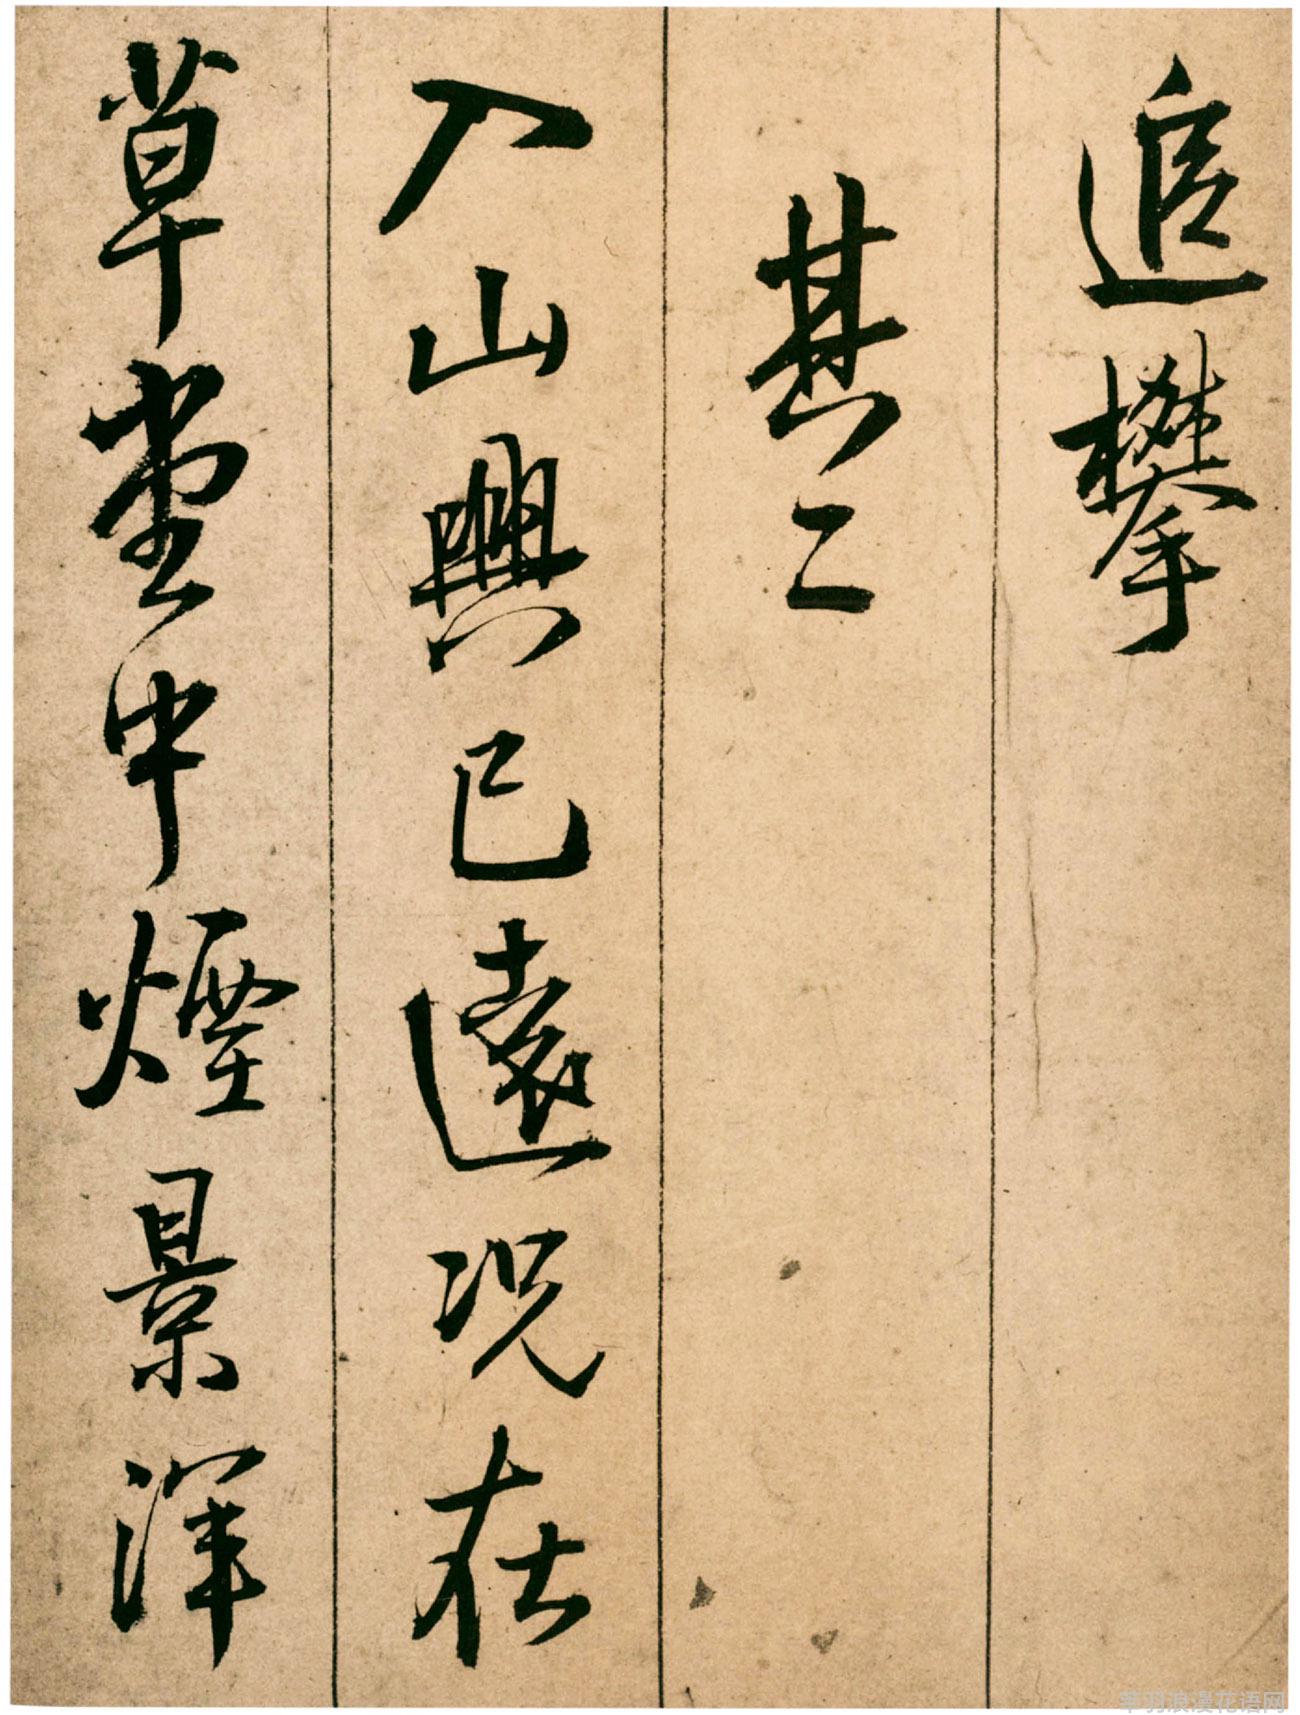 追攀
其二
入山興已遠況在
草堂中煙景渾
羽浪漫花语网